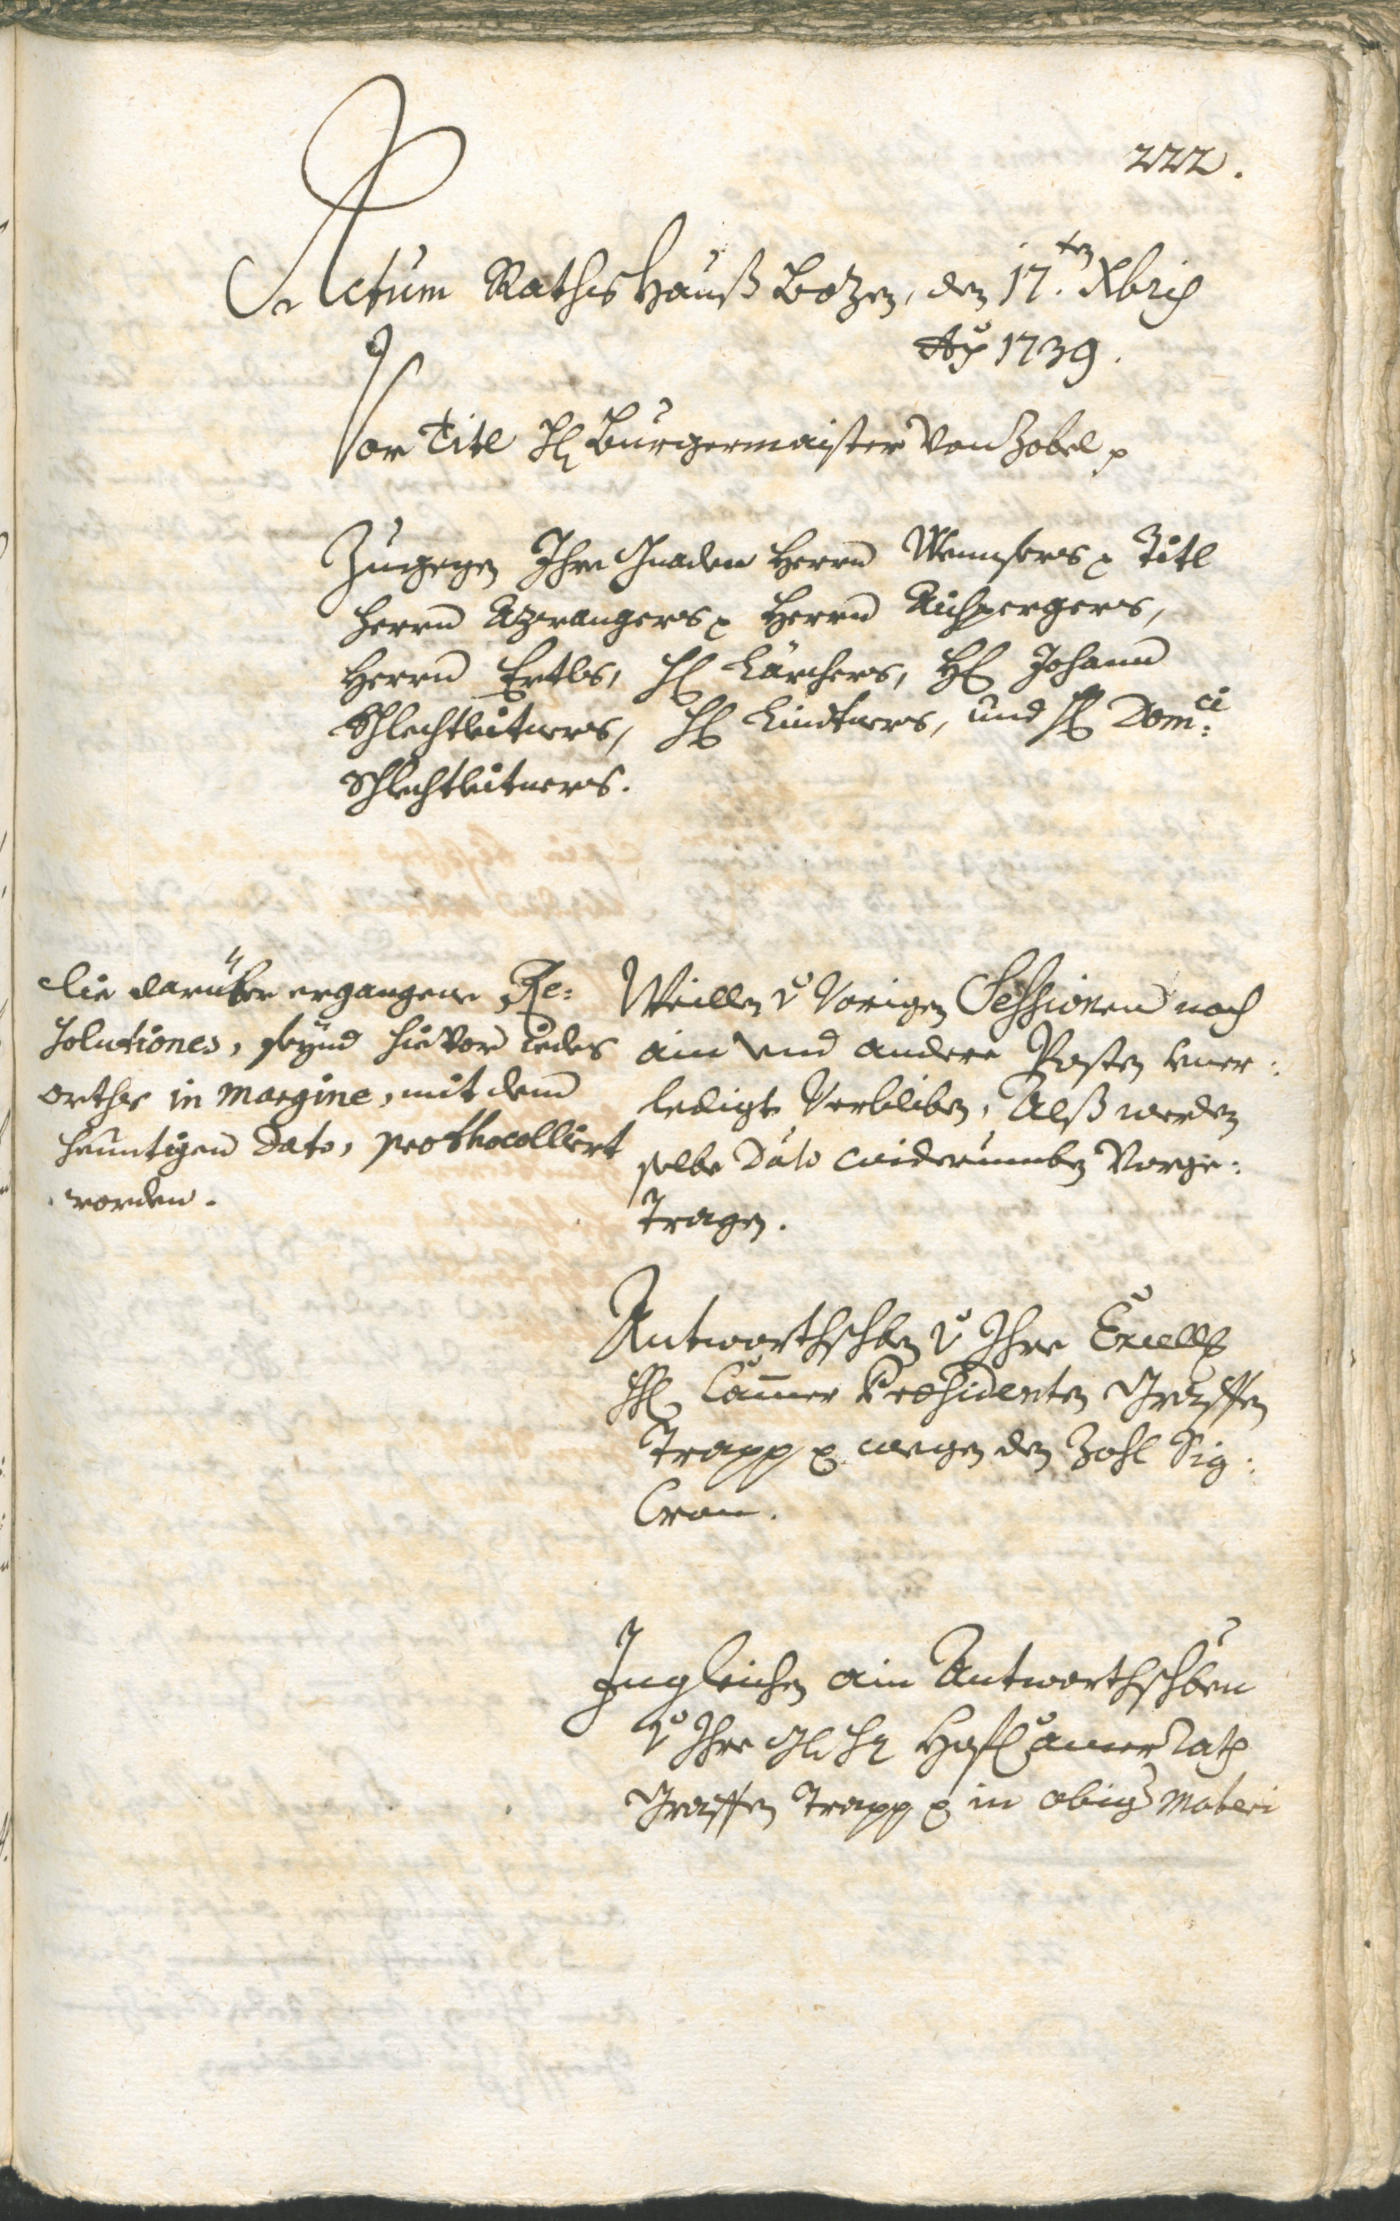 222.
Actum Rathshauß Botzen, den 17.ten Xbris
Ao 1739.
Vor Titl H: Burgermaister von Zobel p
Zugegen Ihre Gnaden Herrn Wensers p Titl
Herrn Azwangers p Herrn Aichpergers,
Herrn Ertls, H: Lärchers, H: Johann
Schlechtleitners, H: Lindtners, und H: Dom:ci
Schlechtleitners.
Die darüber ergangene Re:
solutiones, seynd hievor iedes
orths in margine, mit dem
heuntigen Dato, prothocolliert
worden.
Weillen v vorigen Sessionen noch
ain und andere Posten uner:
ledigt verbliben, Alß werden
selbe Dato widerumben vorge:
tragen.
Antworthschben v Ihre Excells
H: Camer Præsidenten Graffen
Trapp p wegen den Zohl Sig:
Cran.
Ingleichen ain Antworthschben
v Ihre Gl: H: HofCamer Rath
Graffen Trapp p in obig Materi